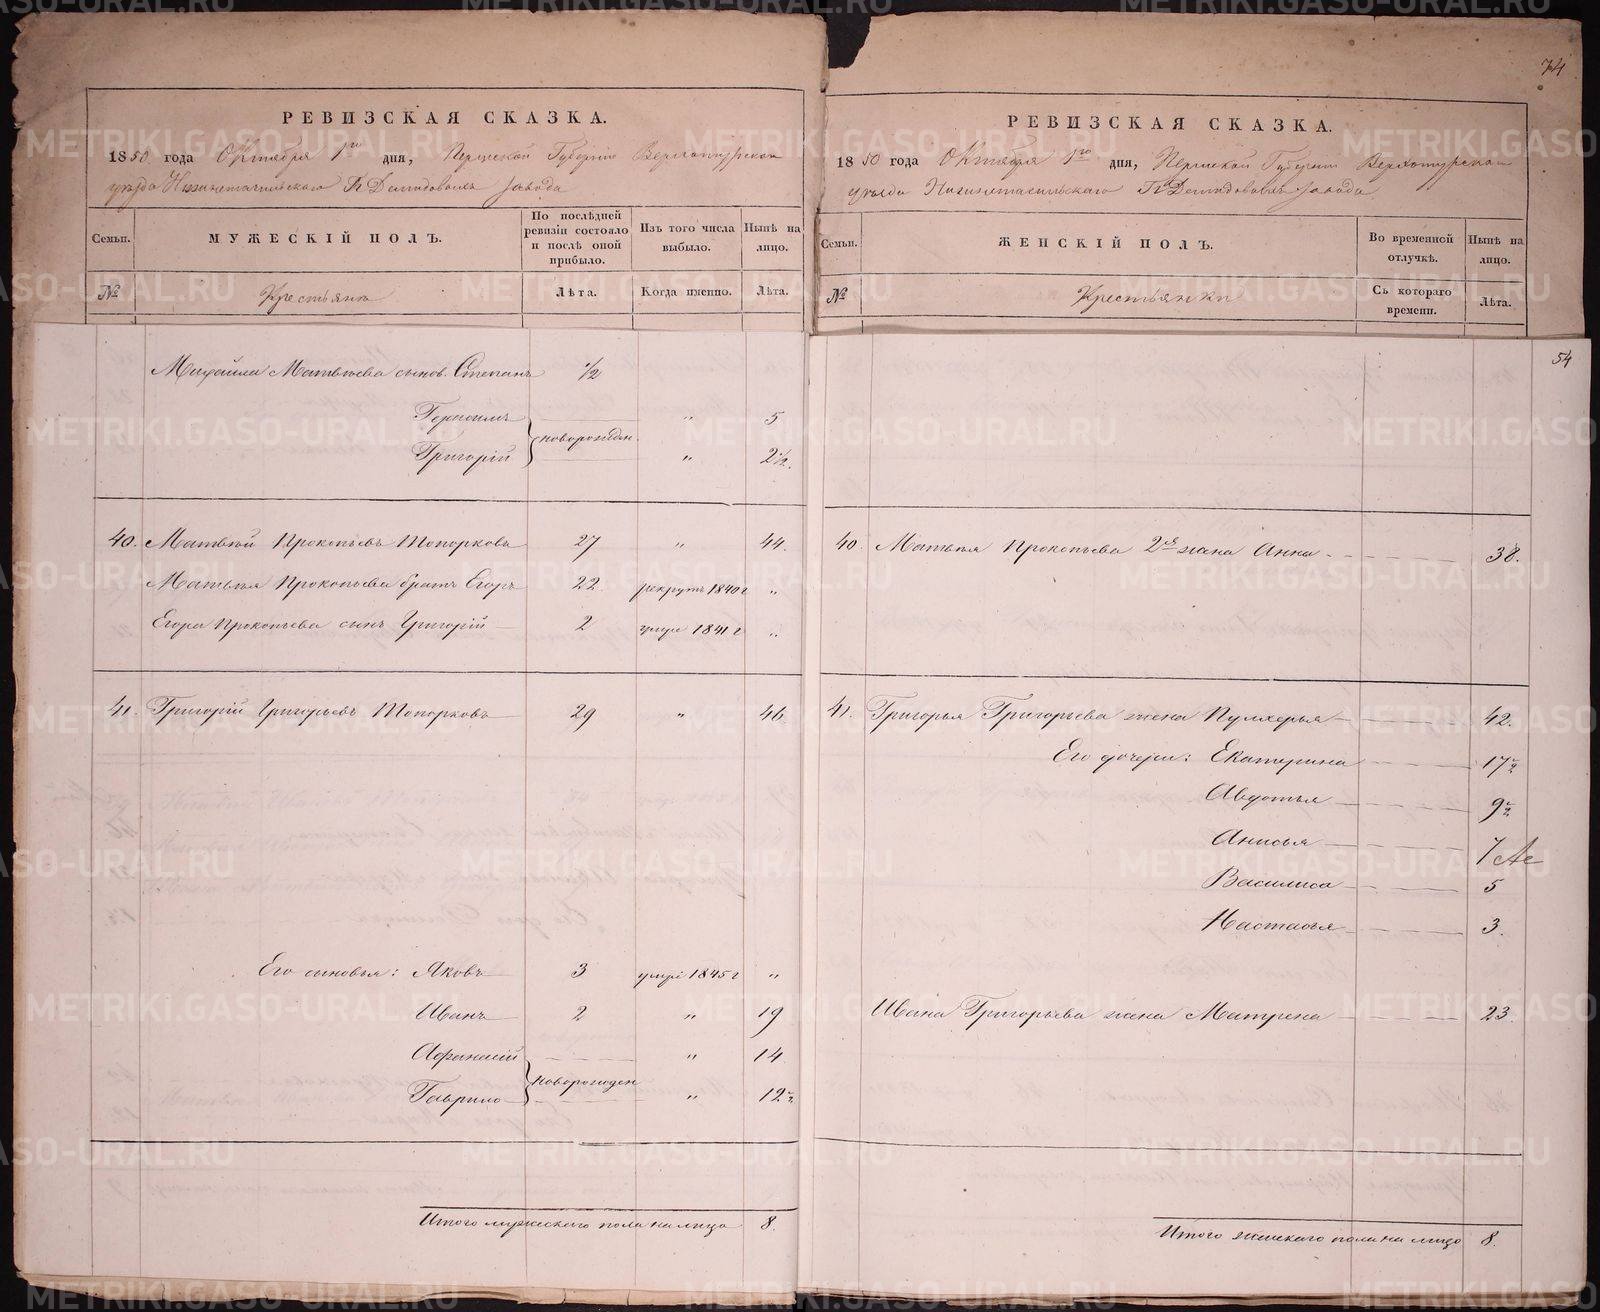 74
РЕВИЗСКАЯ СКАЗКА.
1850 года Октября 1го дня, Пермской Губернiи Верхотурскаго
уѣзда Нижнетагильскаго Гг Демидовыхъ завода
Семьи. МУЖЕСКIЙ ПОЛЪ. По послѣдней ревизiи состояло и послѣ оной прибыло. Изъ того числа выбыло. Нынѣ на лицо.
№ Крестьяне Лѣта. Когда именно. Лѣта.
Михайла Матвѣева сынов. Степанъ 1/2
Герасимъ " 5
новорожден.
Григорiй " 2 1/2.
40. Матвѣй Прокопьевъ Топорковъ 27 " 44.
Матвѣя Прокопьева братъ Егоръ 22 рекрутъ 1840 г "
Егора Прокопьева сынъ Григорiй 2 умре 1841 г "
41. Григорiй Григорьевъ Топорковъ 29 " 46.
Его сыновья: Яковъ 3 умре 1845 г "
Иванъ 2 " 19
Афанасiй " 14
новорожден
Гаврило " 12 1/2
Итого мужескаго пола на лицо 8.
РЕВИЗСКАЯ СКАЗКА.
1850 года Октября 1го дня, Пермской Губернiи Верхотурскаго
уѣзда Нижнетагильскаго Гг Демидовыхъ завода
Семьи. ЖЕНСКIЙ ПОЛЪ. Во временной отлучкѣ. Нынѣ на лицо.
№ Крестьянки Съ котораго времени. Лѣта.
54
40. Матвѣя Прокопьева 2ая жена Анна 38.
41. Григорья Григорьева жена Пулхерья 42.
Его дочери: Екатерина 17 1/2
Авдотья 9 1/2
Анисья 7
Василиса 5
Настасья 3.
Ивана Григорьева жена Матрена 23.
Итого женскаго пола на лицо 8.
METRIKI.GASO-URAL.RU